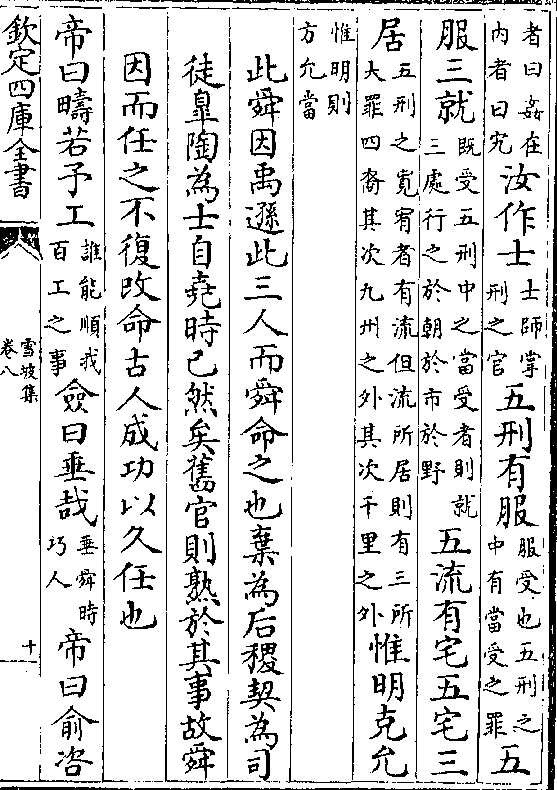 者曰姦在內者曰宄汝作士士師掌刑之官五刑有服服受也五刑之中有當受之罪五
服三就既受五刑中之當受者則就三處行之於朝於市於野五流有宅五宅三
居五刑之寛宥者有流但流所居則有三所大罪四裔其次九州之外其次千里之外惟明克允
惟明則方允當
此舜因禹遜此三人而舜命之也棄為后稷契為司
徒臯陶為士自堯時已然矣舊官則熟於其事故舜
因而任之不復改命古人成功以久任也
帝曰疇若予工誰能順我百工之事僉曰垂哉垂舜時巧人帝曰俞咨
欽定四庫全書
雪坡集
卷八
十